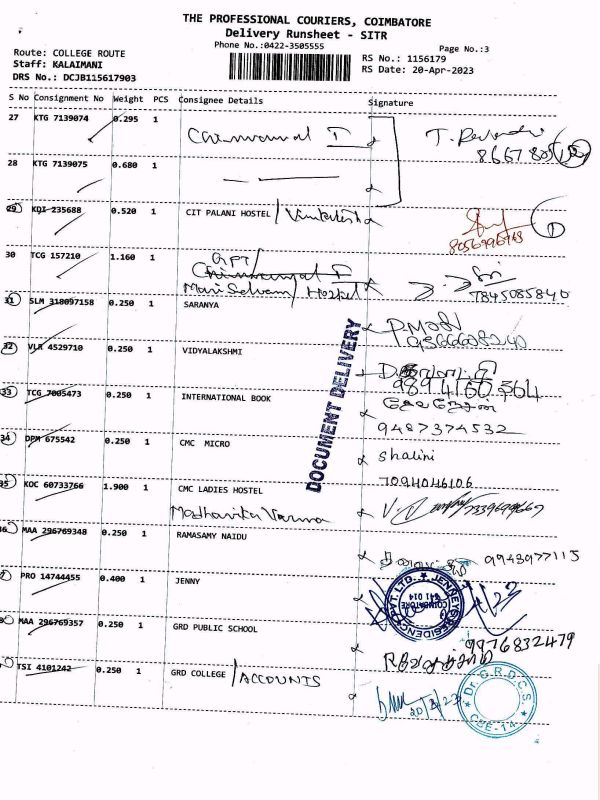 THE PROFESSIONAL COURIERS, COIMBATORE
Delivery Runsheet - SITR
Phone No.:0422-3505555
Page No.:3
Route: COLLEGE ROUTE
Staff: KALAIMANI
DRS No.: DCJB115617903
RS No.: 1156179
RS Date: 20-Apr-2023
S No Consignment No Weight PCS Consignee Details Signature
27 KTG 7139074 0.295 1
28 KTG 7139075 0.680 1
29 KDI 235688 0.520 1 CIT PALANI HOSTEL / Venkatesh
8056996963
30 TCG 157210 1.160 1
Mariselvam / Hostel 7845085840
31 SLM 318097158 0.250 1 SARANYA
32 VLR 4529710 0.250 1 VIDYALAKSHMI
9894160564
33 TCG 7005473 0.250 1 INTERNATIONAL BOOK
9487374532
34 DPM 675542 0.250 1 CMC MICRO
Shalini
7094046106
35 KOC 60733766 1.900 1 CMC LADIES HOSTEL
Madhavika Varma
7339699667
36 MAA 296769348 0.250 1 RAMASAMY NAIDU
9943977115
PRO 14744455 0.400 1 JENNY
MAA 296769357 0.250 1 GRD PUBLIC SCHOOL
9976832479
TSI 4101242 0.250 1 GRD COLLEGE / ACCOUNTS
20/4/23
DOCUMENT DELIVERY
JENNEYS RESIDENCY PVT. LTD.
COIMBATORE
641 014
Dr. G.R.D.C.S.
CBE-14